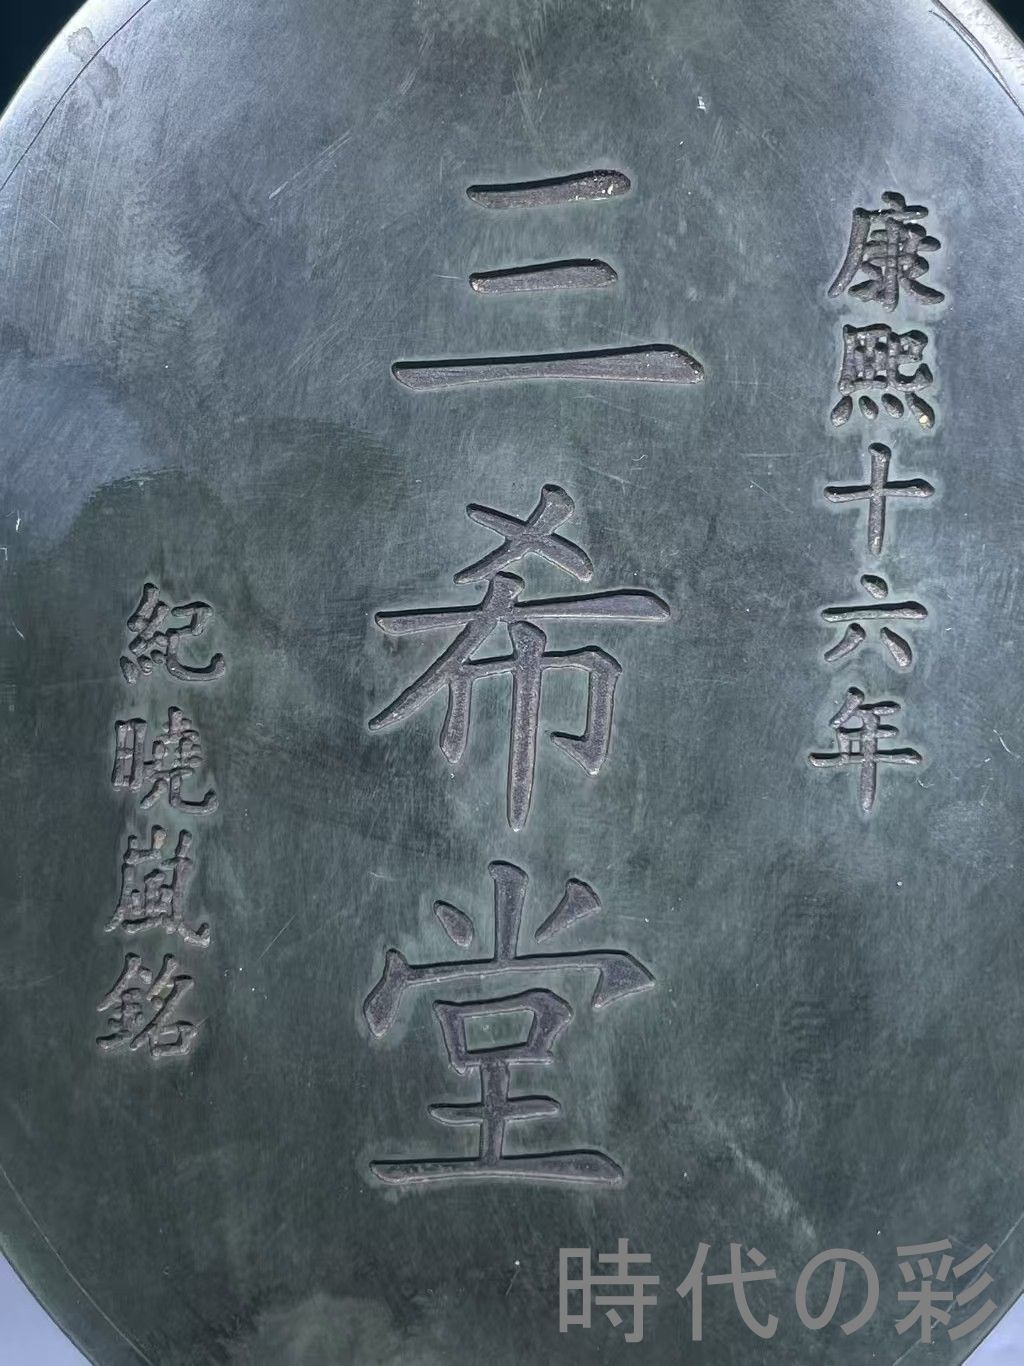 康熙十六年
三希堂
紀曉嵐銘
時代の彩